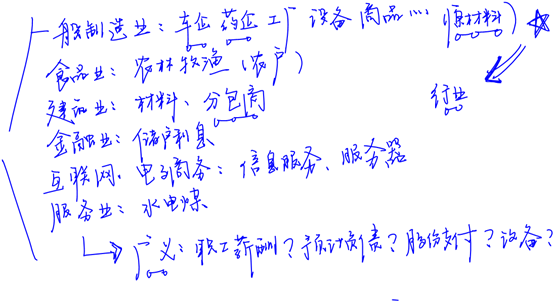 一般制造业：车企 药企 工厂 设备 商品…（原材料）
食品业：农林牧渔（农户）
建筑业：材料、分包商
行业
金融业：储户利息
互联网、电子商务：信息服务、服务器
服务业：水电煤
广义：职工薪酬？预计负债？股份支付？设备？